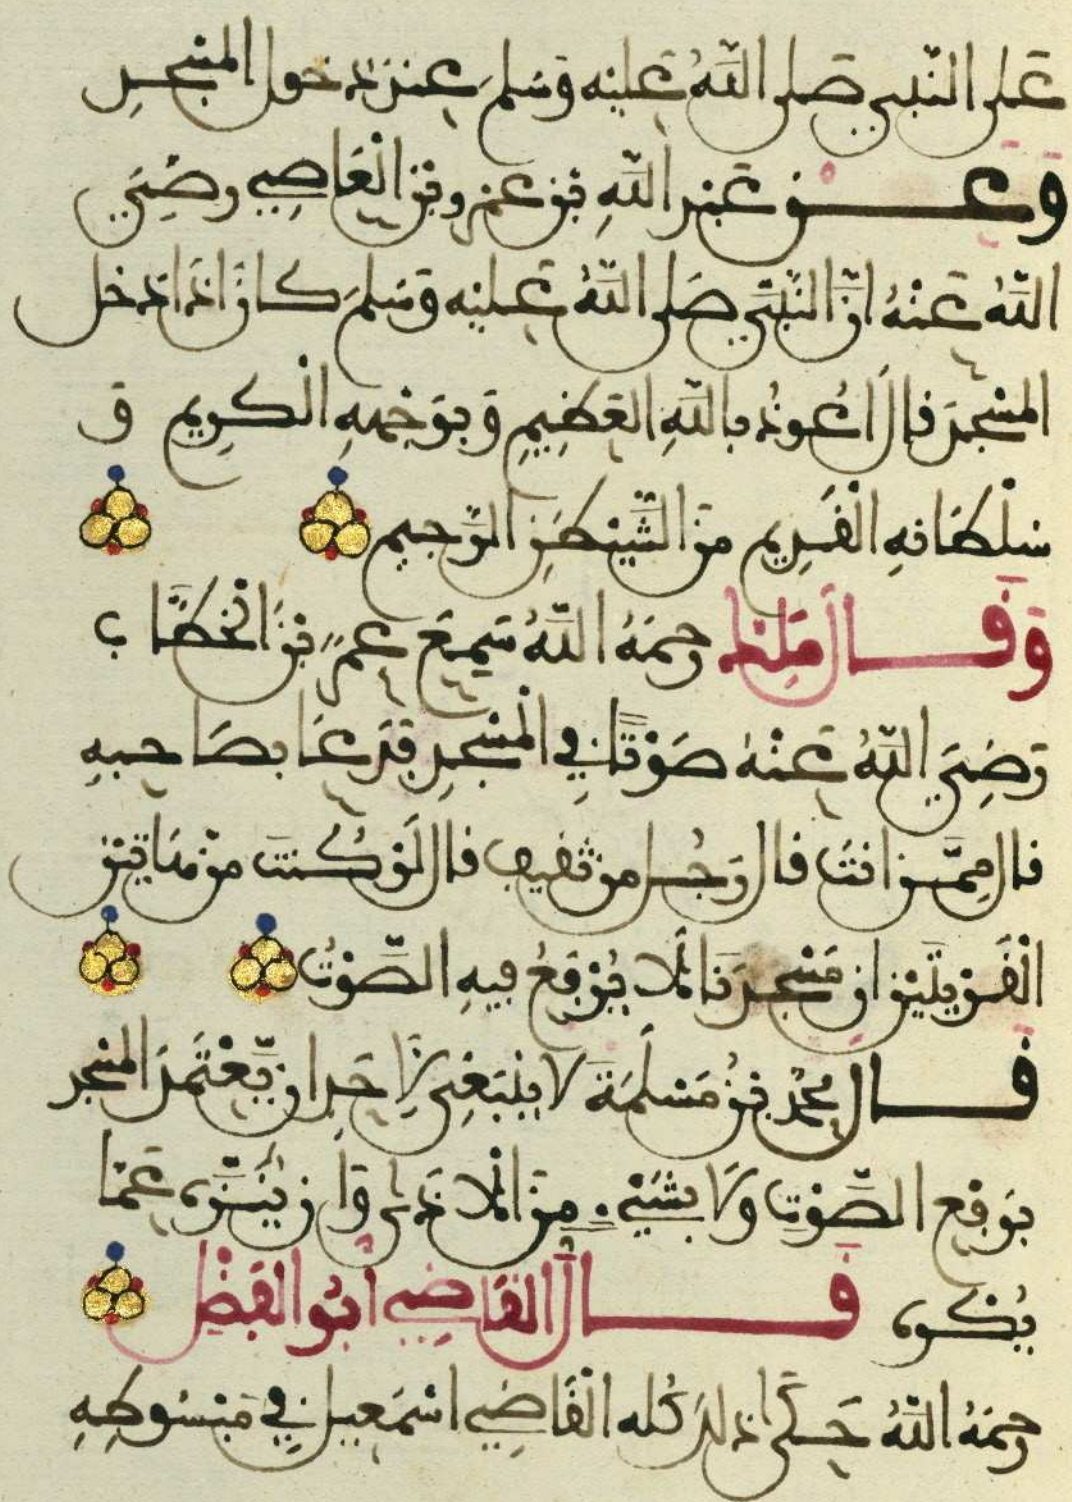 عَلى النَّبِي صَلى اللَّهُ عَلَيْه وَسَلم عِند دخول المسْجِدِ
وَعَــن عَبْدِ اللَّهِ بْن عَمْرِو بْنِ الْعَاصِي رضِيَ
اللَّهُ عَنْهُ انَّ النَّبِيَّ صَلى اللَّهُ عَلَيْه وَسَلمَ كانَ اذَا دَخل
المسْجِدَ قالَ اعُوذ باللَّهِ العَظِيمِ وَبوَجْهِهِ الْكرِيمِ وَ
سُلْطَانهِ الْقَدِيم مِنَ الشَّيْطَنِ الرَّجِيم
وَقَـــالَ مَلِك رحِمَهُ اللَّهُ سَمِعَ عمرُ بْنُ الْخطَّاب
رَضِيَ اللَّهُ عَنْهُ صَوْتًا فِي الْمَسْجِدِ فَدَعَا بصَاحِبهِ
قال مِمَّــن انتَ قال رَجُــل من ثقيف قال لَوْ كُنتَ مِنْ هَاتيْن
الْقَرْيَتَيْن انَّ مَسْجِدَنَا لَا يُرْفَعُ فِيهِ الصَّوْتُ
قَـــال محمدُ بْنُ مَسْلَمَةَ لَا يَنْبَغِي لِأَحَدٍ ان يَّعْتَمِدَ المسْجد
بِرَفْعِ الصَّوْتِ وَلَا بشَيْءٍ مِنَ الْأَذَى وَأَن يُنَــزَّهَ عَمَّا
يُكْرَه قَـــالَ القَاضِي ابُو الفَضْلِ
رحِمَهُ اللَّهُ حَــكَى ذلكَ كُله الْقَاضِي اسْمَعِيل فِي مَبْسُوطِهِ